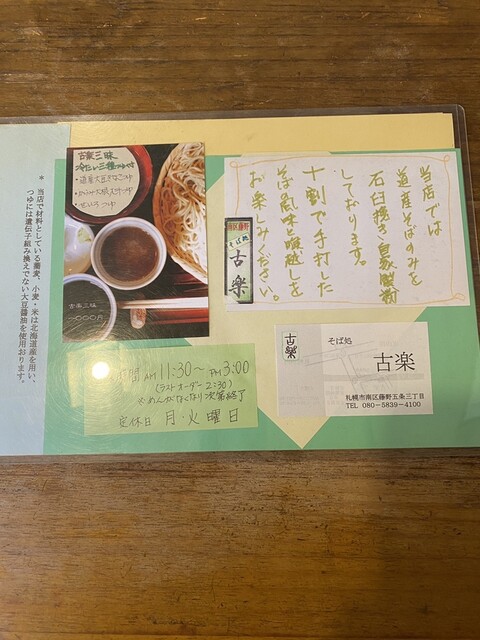 当店では
道産そばのみを
石臼挽き自家製粉
しております。
十割で手打した
そば風味と喉越しを
お楽しみください。
南区藤野
そば処
古楽
古楽三昧
冷たい三種つゆ
・道産大豆きなこつゆ
・せいろつゆ
古楽三昧
一〇〇〇円
＊ 当店で材料としている蕎麦、小麦・米は北海道産を用い、
つゆには遺伝子組み換えでない大豆醤油を使用おります。
間 AM 11:30～PM 3:00
(ラストオーダー 2:30)
※めんがなくなり次第終了
定休日 月・火曜日
古楽
そば処
古楽
札幌市南区藤野五条三丁目
TEL 080-5839-4100